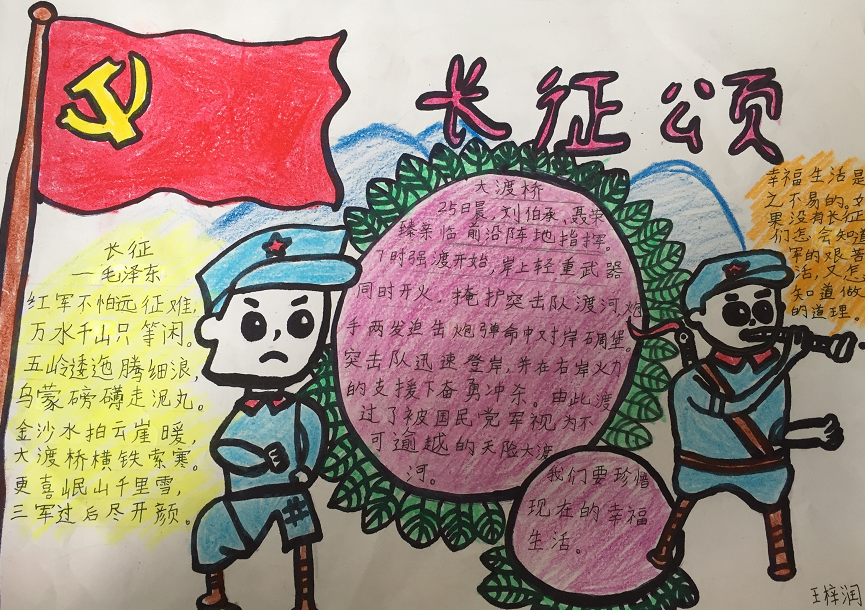 长征颂
长征
—毛泽东
红军不怕远征难,
万水千山只等闲。
五岭逶迤腾细浪,
乌蒙磅礴走泥丸。
金沙水拍云崖暖,
大渡桥横铁索寒。
更喜岷山千里雪,
三军过后尽开颜。
大渡桥
25日晨,刘伯承、聂荣
臻亲临前沿阵地指挥。
7时强渡开始,岸上轻重武器
同时开火,掩护突击队渡河炮
手两发迫击炮弹命中对岸碉堡。
突击队迅速登岸,并在右岸火力
的支援下奋勇冲杀。由此渡
过了被国民党军视为不
可逾越的天险大渡
河。
我们要珍惜
现在的幸福
生活。
幸福生活是
之不易的。如
果没有长征
们怎会知道
军的艰苦
活,又怎
知道做
的道理。
王梓润